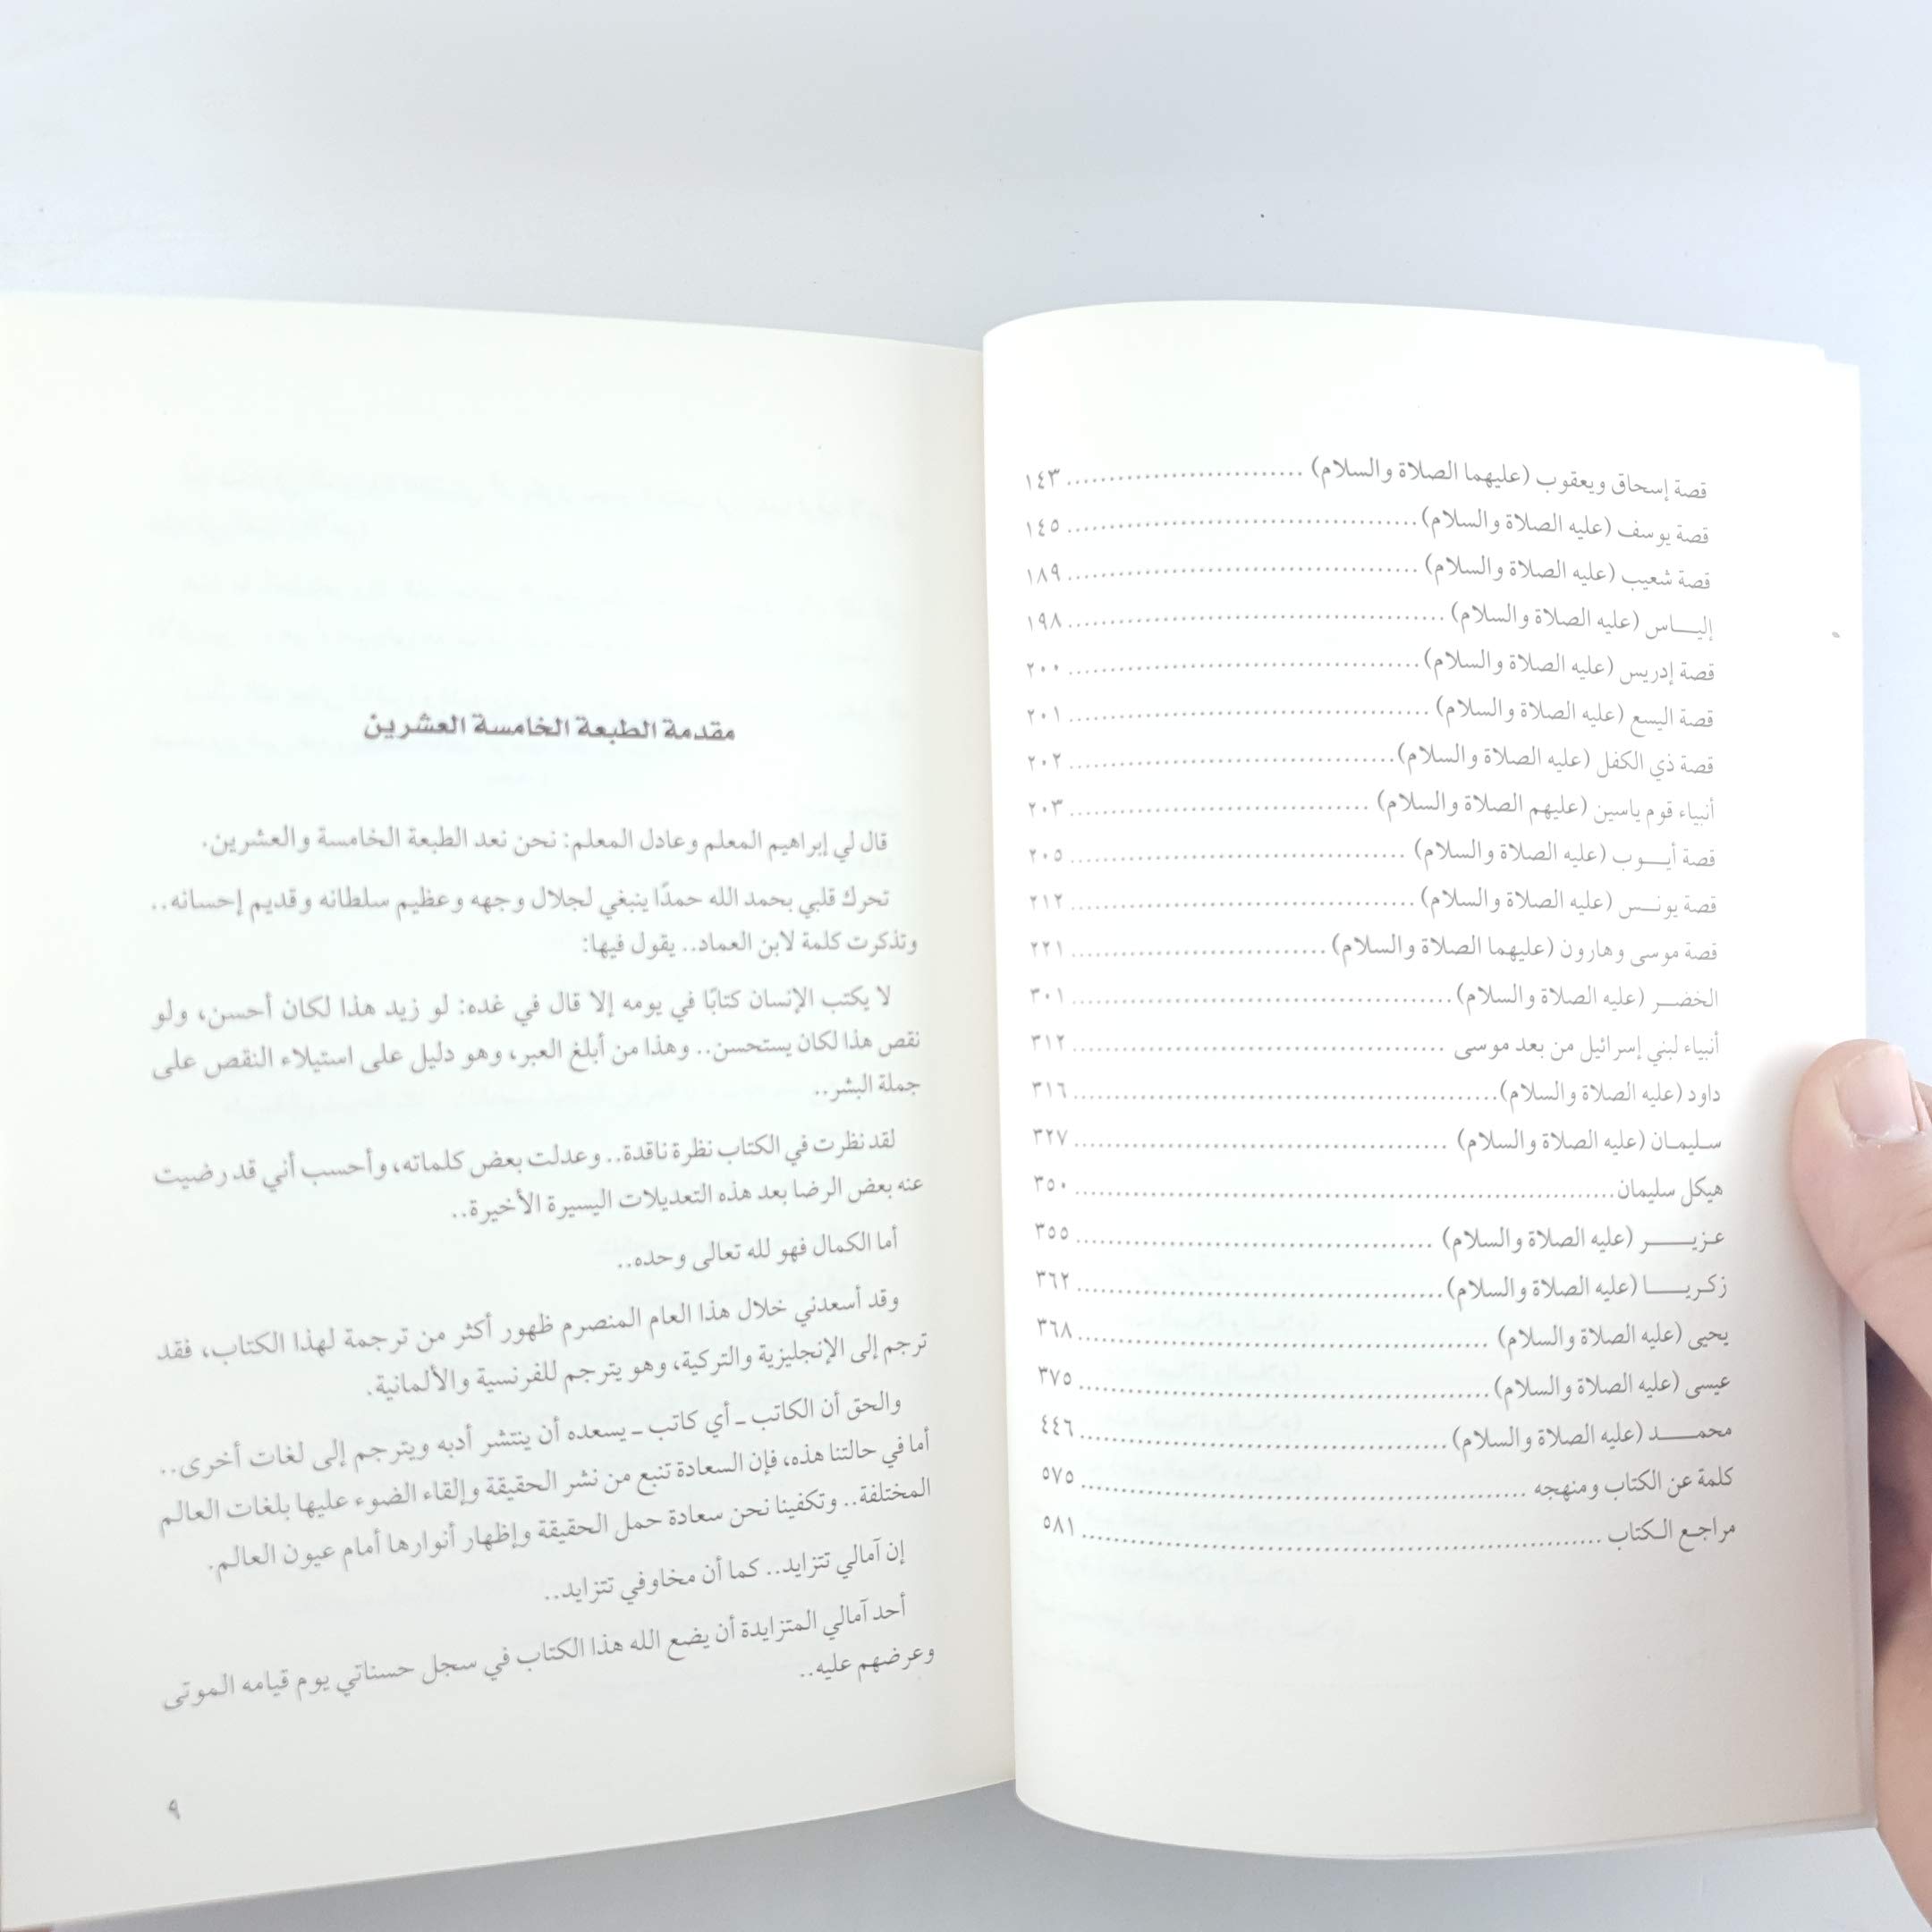 قصة إسحاق ويعقوب (عليهما الصلاة والسلام) ........................... ١٤٣
قصة يوسف (عليه الصلاة والسلام) ........................................ ١٤٥
قصة شعيب (عليه الصلاة والسلام) ........................................ ١٨٩
إليـــاس (عليه الصلاة والسلام) ........................................... ١٩٨
قصة إدريس (عليه الصلاة والسلام) ........................................ ٢٠٠
قصة اليسع (عليه الصلاة والسلام) ......................................... ٢٠١
قصة ذي الكفل (عليه الصلاة والسلام) ..................................... ٢٠٢
أنبياء قوم ياسين (عليهم الصلاة والسلام) .................................. ٢٠٣
قصة أيـــوب (عليه الصلاة والسلام) ....................................... ٢٠٥
قصة يونــس (عليه الصلاة والسلام) ....................................... ٢١٢
قصة موسى وهارون (عليهما الصلاة والسلام) ............................. ٢٢١
الخضـر (عليه الصلاة والسلام) ........................................... ٣٠١
أنبياء لبني إسرائيل من بعد موسى .......................................... ٣١٢
داود (عليه الصلاة والسلام) ................................................ ٣١٦
سليمـان (عليه الصلاة والسلام) ........................................... ٣٢٧
هيكل سليمان ............................................................... ٣٥٠
عـزيــــــر (عليه الصلاة والسلام) ........................................ ٣٥٥
زكـريـــــا (عليه الصلاة والسلام) ........................................ ٣٦٢
يحيى (عليه الصلاة والسلام) .............................................. ٣٦٨
عيسى (عليه الصلاة والسلام) .............................................. ٣٧٥
محمـــــد (عليه الصلاة والسلام) ......................................... ٤٤٦
كلمة عن الكتاب ومنهجه ................................................. ٥٧٥
مراجع الكتاب ............................................................. ٥٨١
مقدمة الطبعة الخامسة العشرين
قال لي إبراهيم المعلم وعادل المعلم: نحن نعد الطبعة الخامسة والعشرين.
تحرك قلبي بحمد الله حمدًا ينبغي لجلال وجهه وعظيم سلطانه وقديم إحسانه..
وتذكرت كلمة لابن العماد.. يقول فيها:
لا يكتب الإنسان كتابًا في يومه إلا قال في غده: لو زيد هذا لكان أحسن، ولو
نقص هذا لكان يستحسن.. وهذا من أبلغ العبر، وهو دليل على استيلاء النقص على
جملة البشر..
لقد نظرت في الكتاب نظرة ناقدة.. وعدلت بعض كلماته، وأحسب أني قد رضيت
عنه بعض الرضا بعد هذه التعديلات اليسيرة الأخيرة..
أما الكمال فهو لله تعالى وحده..
وقد أسعدني خلال هذا العام المنصرم ظهور أكثر من ترجمة لهذا الكتاب، فقد
ترجم إلى الإنجليزية والتركية، وهو يترجم للفرنسية والألمانية.
والحق أن الكاتب ـ أي كاتب ـ يسعده أن ينتشر أدبه ويترجم إلى لغات أخرى..
أما في حالتنا هذه، فإن السعادة تنبع من نشر الحقيقة وإلقاء الضوء عليها بلغات العالم
المختلفة.. وتكفينا نحن سعادة حمل الحقيقة وإظهار أنوارها أمام عيون العالم.
إن آمالي تتزايد.. كما أن مخاوفي تتزايد..
أحد آمالي المتزايدة أن يضع الله هذا الكتاب في سجل حسناتي يوم قيامه الموتى
وعرضهم عليه..
٩